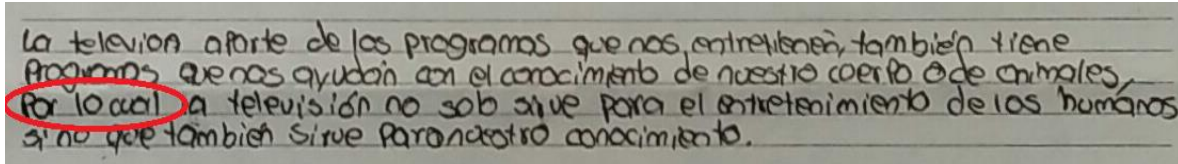 La televion aporte de los programas que nos entretienen, también tiene
Programas que nos ayudan con el conocimiento de nuestro coerpo o de animales,
Por lo cual la televisión no solo sirve para el entretenimiento de los humanos
si no que también sirve para nuestro conocimiento.